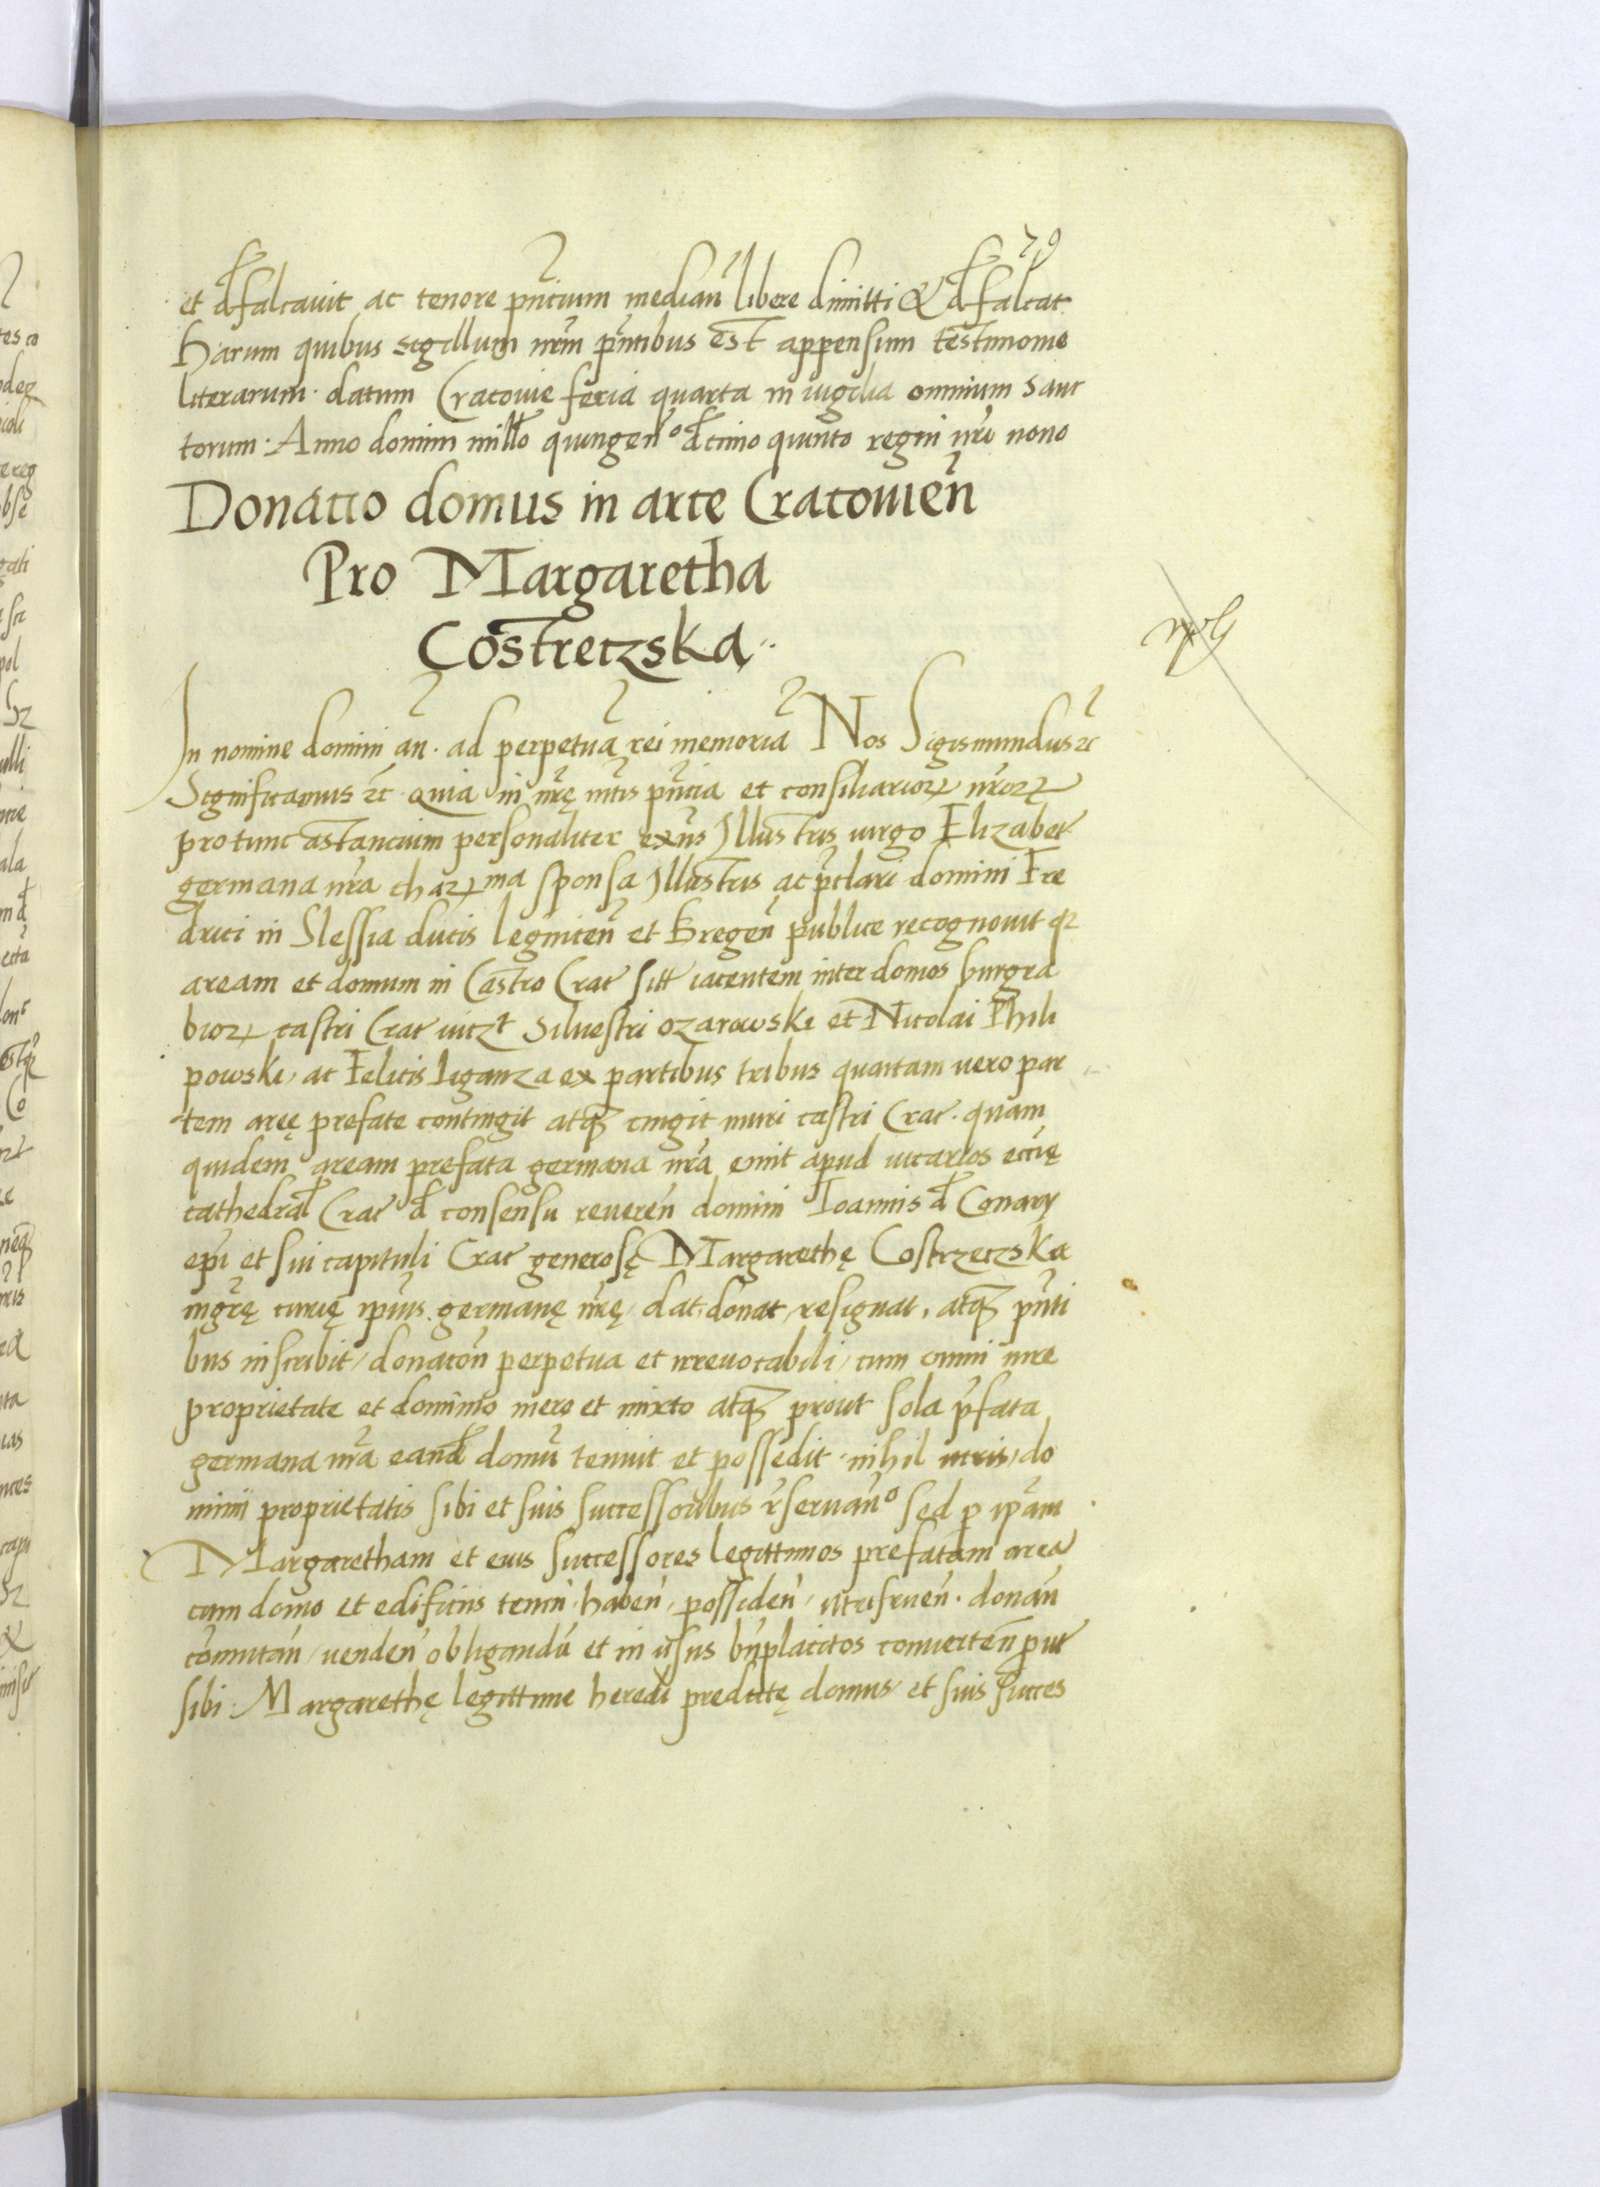 79
et defalcavit ac tenore pñtium median̄ libere dimitti & defalcat
Harum quibus sigillum nrm̄ pñtibus est appensum testimonio
literarum. datum Cracovie feria quarta in vigilia omnium sanc
torum. Anno domini millo quingen° decimo quinto regni nr̄i nono
Donatio domus in arce Cracovien̄
Pro Margaretha
Costretzska
In nomine domini am̄. ad perpetuā rei memoriā Nos Sigismundus ꝛc
Significamus ꝛc Quia in nr̄ę mt̄is pñtia et consiliarioꝝ nr̄oꝝ
pro tunc astancium personaliter exn̄s Illustris virgo Elizabet
germana nr̄a chaꝝma sponsa Illustris ac p̄clari domini Fre
drici in Slessia ducis legnicen̄ et Bregen̄ publice recognovit qꝛ
aream et domum in Castro Crac sitt iacentem inter domos burgra
bioꝝ castri Crac viczt Silvestri ozarowski et Nicolai Phili
powski, ac Felicis Liganza ex partibus tribus quartam vero par
tem aręę prefate contingit atqꝫ cingit muri castri Crac. quam
quidem aream prefata germana nr̄a emit apud vicarios ecc̄ię
cathedral Crac de consensu reveren̄ domini Ioannis de Conary
ep̄i et sui capituli Crac generosę Margarethę Costrzeczska
mgr̄ę curię ip̄ius germanę nr̄ę, dat, donat, resignat, atqꝫ pñti
bus inscribit, donacōn perpetua et irrevocabili, cum omni iure
proprietate et dominio mero et mixto atqꝫ prout sola p̄fata
germana nr̄a eande domū tenuit et possedit. nihil iuris, do
minii proprietatis sibi et suis successoribus r̄servan̄° sed ꝑ ip̄am
Margaretham et eius successores legittimos prefatam area
cum domo et edificiis tenen̄, haben̄, possiden̄, utifruen̄. donan̄
com̄utan̄, venden̄ obligandū et in usus bn̄placitos converten̄ put
sibi Margarethę legittime heredi predictę domus, et suis succes